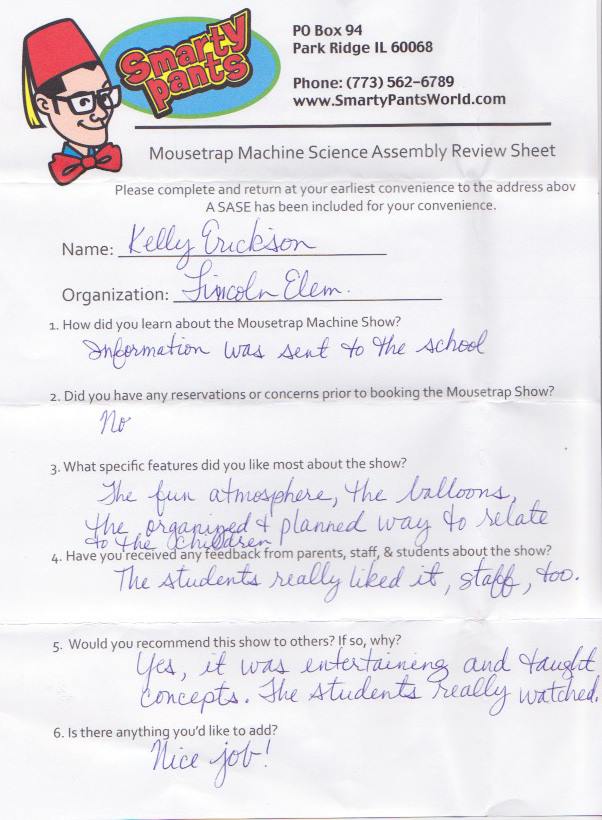 Smarty
pants
PO Box 94
Park Ridge IL 60068
Phone: (773) 562-6789
www.SmartyPantsWorld.com
Mousetrap Machine Science Assembly Review Sheet
Please complete and return at your earliest convenience to the address abov
A SASE has been included for your convenience.
Name: Kelly Erickson
Organization: Lincoln Elem.
1. How did you learn about the Mousetrap Machine Show?
Information was sent to the school
2. Did you have any reservations or concerns prior to booking the Mousetrap Show?
No
3. What specific features did you like most about the show?
The fun atmosphere, the balloons,
the organized & planned way to relate
to the children
4. Have you received any feedback from parents, staff, & students about the show?
The students really liked it, staff, too.
5. Would you recommend this show to others? If so, why?
Yes, it was entertaining and taught
concepts. The students really watched.
6. Is there anything you'd like to add?
Nice job!